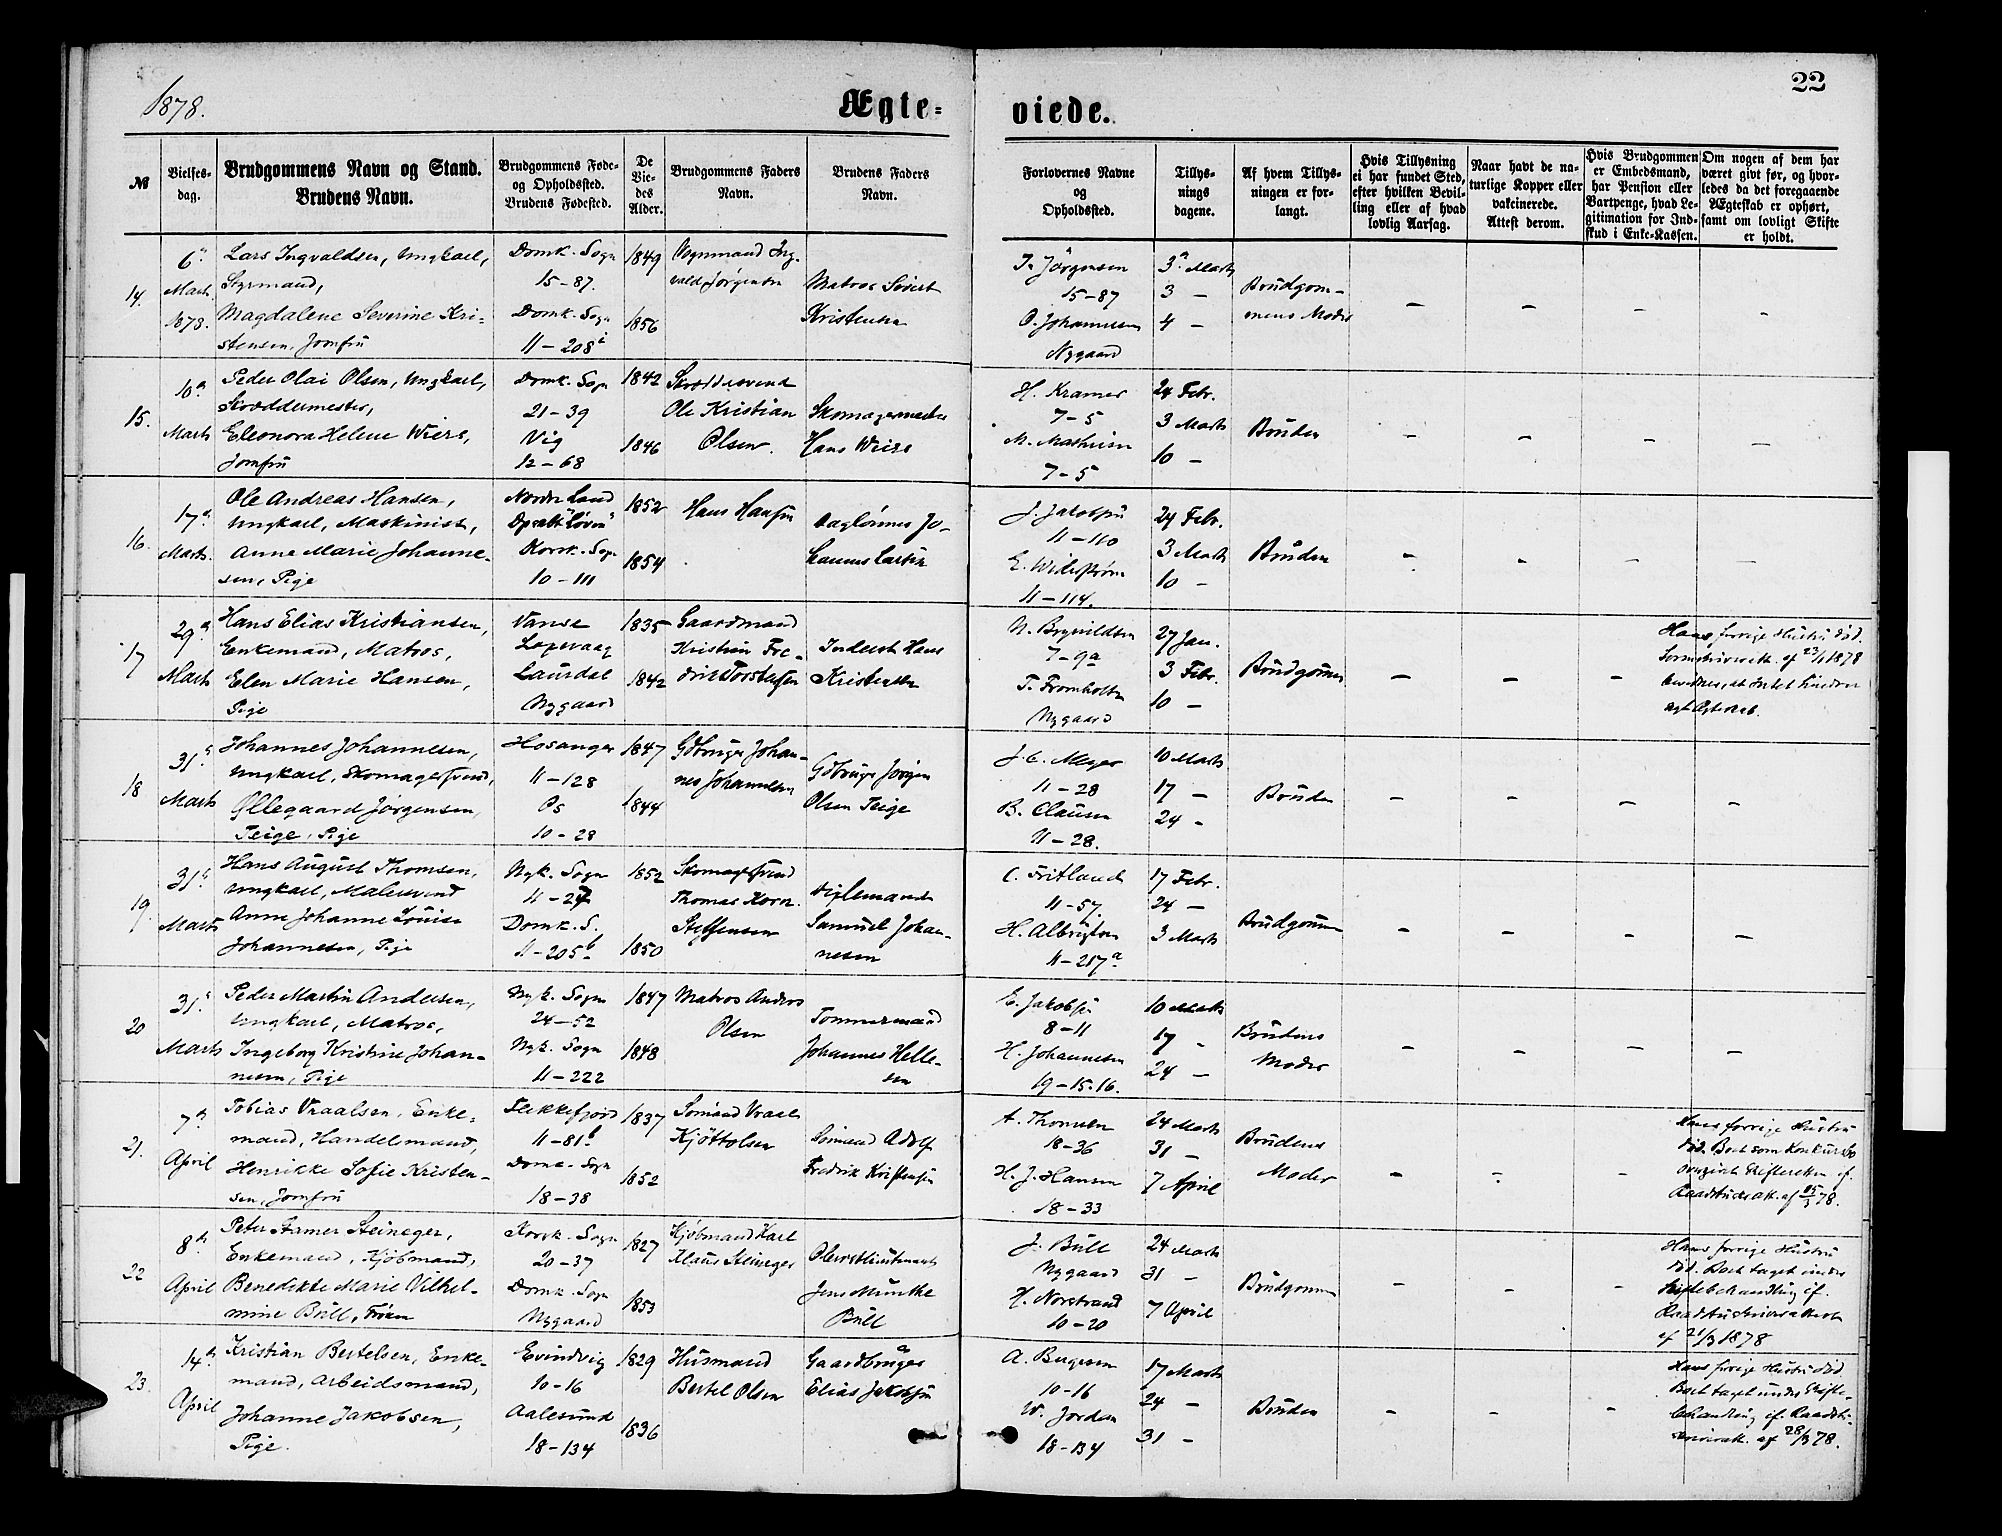 1878.
Ægte-
viede.
22
№
Vielses-
dag.
Brudgommens Navn og Stand.
Brudens Navn.
Brudgommens Føde-
og Opholdssted.
Brudens Fødested.
De
Vie-
des
Alder.
Brudgommens Faders
Navn.
Brudens Faders
Navn.
Forlovernes Navne
og
Opholdssted.
Tillys-
nings
dagene.
Af hvem Tillys-
ningen er for-
langt.
Hvis Tillysning
ei har fundet Sted,
efter hvilken Bevil-
ling eller af hvad
lovlig Aarsag.
Naar havt de na-
turlige Kopper eller
vakcinerede.
Attest derom.
Hvis Brudgommen
er Embedsmand,
har Pension eller
Vartpenge, hvad Le-
gitimation for Ind-
skud i Enke-Kassen.
Om nogen af dem har
været givt før, og hvor-
ledes da det foregaaende
Ægteskab er ophørt,
samt om lovligt Skifte
er holdt.
14.
6
Marts
1878.
Lars Ingvaldsen, Ungkarl,
Styrmand,
Magdalene Severine Kri-
stensen, Jomfru
Domk. Sogn
15-87.
Domk. Sogn
11-208
1849
1856
Ing-
vald Jørgensen
Matros Sivert
Kristensen
T. Jörgensen
15-87
O. Johannesen
Nygaard
3 Marts
3 -
4 -
Brudgom-
mens Moder
-
-
-
-
15.
10
Marts
Peder Olai Olsen, Ungkarl,
Skræddermester,
Eleonora Helene Wiers,
Jomfru
Domk. Sogn
21-39
Vig
12-68
1842
1846
Skræddersvend
Ole Kristian
Olsen.
Skomagermester
Hans Wiers
H. Kramer
7-5
M. Mathisen
7-5
24 Febr.
3 Marts
10 -
Bruden
-
-
-
-
16.
17
Marts.
Ole Andreas Hansen,
Ungkarl, Maskinist,
Anne Marie Johanne-
sen, Pige
Nordre Land
"Løven"
Korsk. Sogn
10-111
1852
1854
Hans Hansen
Daglönner Jo-
hannes Larsen
J. Jakobsen
11-110
E. Widestrøm
11-114.
24 Febr.
3 Marts
10 -
Bruden
-
-
-
-
17
29
Marts
Hans Elias Kristiansen,
Enkemand, Matros,
Elen Marie Hansen,
Pige
Vanse
Laurdal
Nygaard
1835
1842
Gaardmand
Kristian Fre-
drik Torstensen
Inderst Hans
Kristensen
N. Brynildsen
7-9a
T. Fromholtz
Nygaard
27 Jan.
3 Febr.
10 -
Brudgommen
-
-
-
Hans forrige Hustru död.
af 23/1 1878
18
31
Marts
Johannes Johannesen,
Ungkarl, Skomagersvend,
Øllegaard Jørgensen
Teige, Pige
Hosanger
11-128
Os
10-28
1847
1844
Gdbruger Johan-
nes Johannesen
Gdbruger Jørgen
Olsen Teige
J. C. Meyer
11-28
B. Clausen
11-28.
10 Marts
17 -
24 -
Bruden
-
-
-
-
19.
31
Marts
Hans August Thomsen,
Ungkarl, Malersvend
Anne Johanne Louise
Johannesen, Pige
Nyk. Sogn
11-27
Domk. S.
11-205b
1852
1850
Skomagersvend
Thomas Korn.
Steffensen
Samuel Johan-
nesen
C. Fritland
11-57.
H. Albrigtsen
11-217a
17 Febr.
24 -
3 Marts
Brudgommen
-
-
-
-
20
31
Marts
Peder Martin Andersen,
Ungkarl, Matros,
Ingeborg Kristine Johan-
nesen, Pige
Nyk. Sogn
24-52
Nyk. Sogn
11-222
1847
1848
Matros Anders
Olsen
Tømmermand
Johannes Helle-
sen
E. Jakobsen
8-11
H. Johannesen
19-15.16.
10 Marts
17 -
24 -
Brudens
Moder
-
-
-
-
21.
7
April
Tobias Vraalsen, Enke-
mand, Handelsmand,
Henrikke Sofie Kristen-
sen, Jomfru
Flekkefjord
11-81b
Domk. Sogn
18-38
1837
1852
Sömand Vraal
Kjöttolsen
Sömand Adolf
Fredrik Kristensen
A. Thomsen
18-36
H. J. Hansen
18-33
24 Marts
31 -
7 April
Brudens
Moder
-
-
-
Hans forrige Hustru
død. Boet som Konkursbo
overgivet Skifteretten if.
Raadstueskr. att. af 15/3 78.
22
8
April
Peter Stamer Steineger,
Enkemand, Kjøbmand,
Benedikte Marie Vilhel-
mine Büll, Frøken
Korsk. Sogn
20-37
Domk. Sogn
Nygaard
1827
1853
Kjöbmand Karl
Klaus Steineger
Oberstlieutenant
Jens Munthe
Büll
J. Büll
Nygaard
H. Norstrand
10-20
24 Marts
31 -
7 April
Brudgommen
-
-
-
Hans forrige Hustru
död. Boet taget under
Skiftebehandling if.
af 21/3 1878
23.
14
April
Kristian Bertelsen, Enke-
mand, Arbeidsmand,
Johanne Jakobsen,
Pige.
Evindvig
10-16
Aalesund
18-134
1829
1836
Husmand
Bertel Olsen
Gaardbruger
Elias Jakobsen
A. Bergesen
10-16
W. Jordan
18-134
17 Marts
24 -
31 -
Bruden
-
-
-
Hans forrige Hustru död.
Boet taget under Skifte-
behandling if. Raadstu-
af 28/3 78.